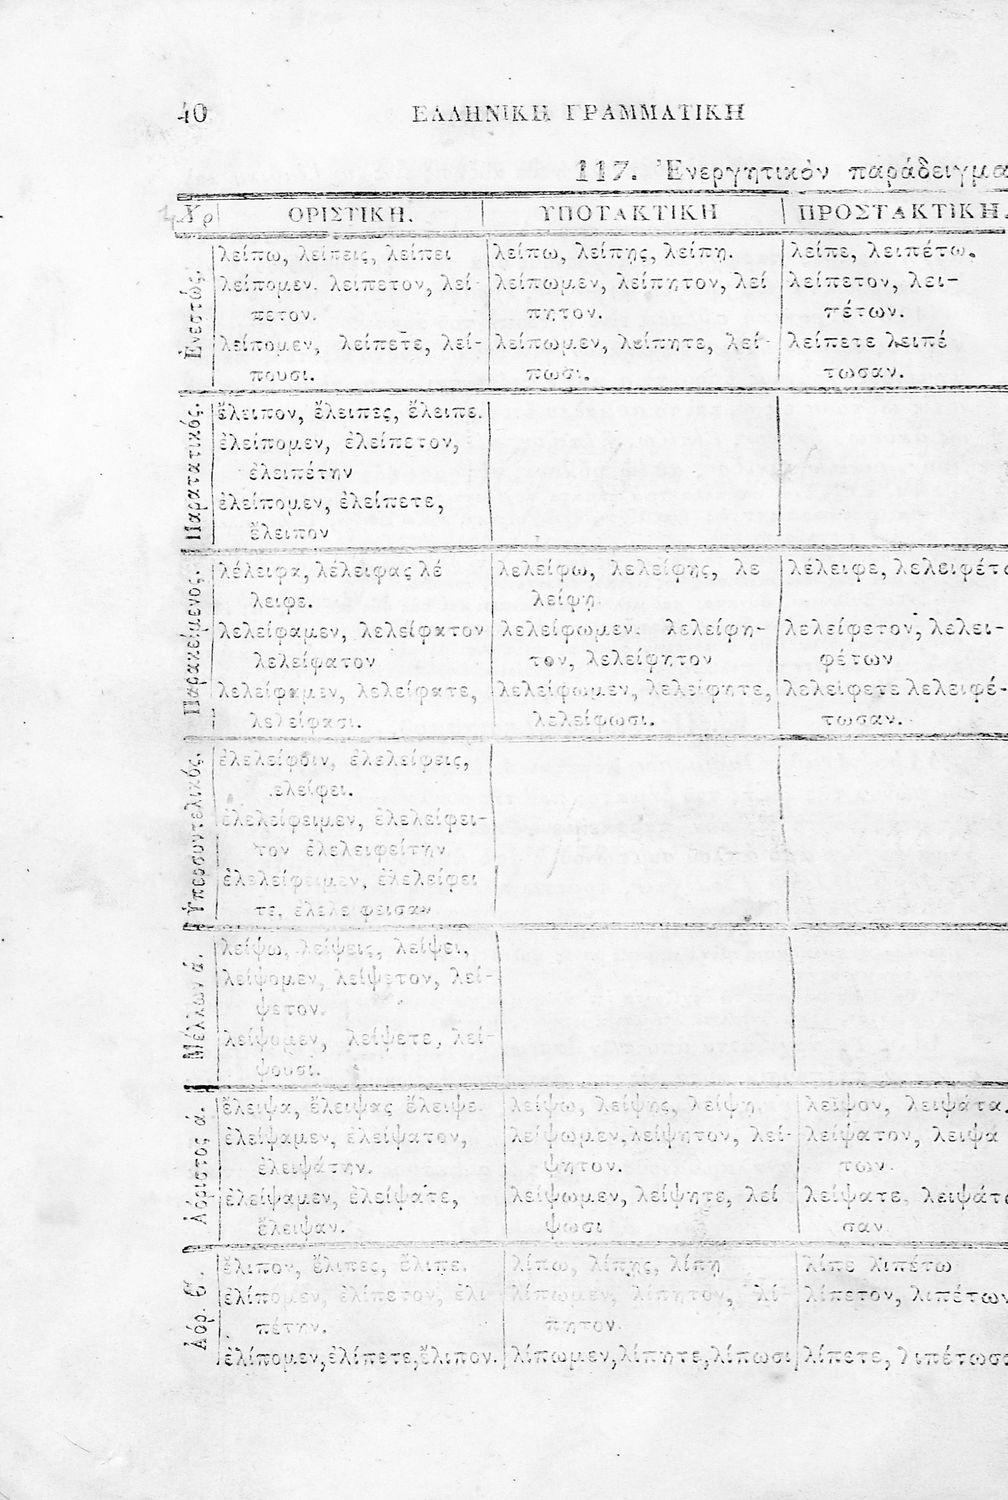 40
ΕΛΛΗΝΙΚΗ ΓΡΑΜΜΑΤΙΚΗ
117. Ἐνεργητικὸν παράδειγμα
Χρ
ΟΡΙΣΤΙΚΗ.
ΥΠΟΤΑΚΤΙΚΗ
ΠΡΟΣΤΑΚΤΙΚΗ.
Ἐνεστώς.
λείπω, λείπεις, λείπει
λείπομεν. λειπετον, λεί-
πετον.
λείπομεν, λείπετε, λεί-
πουσι.
λείπω, λείπης, λείπη.
λείπωμεν, λείπητον, λεί
πητον.
λείπωμεν, λείπητε, λεί-
πωσι.
λείπε, λειπέτω.
λείπετον, λει-
πέτων.
λείπετε λειπέ
τωσαν.
Παρατατικός.
ἔλειπον, ἔλειπες, ἔλειπε.
ἐλείπομεν, ἐλείπετον,
ἐλειπέτην
ἐλείπομεν, ἐλείπετε,
ἔλειπον
Παρακείμενος.
λέλειφα, λέλειφας λέ
λειφε.
λελείφαμεν, λελείφατον
λελείφατον
λελείφαμεν, λελείφατε,
λελείφασι.
λελείφω, λελείφης, λε
λείφη
λελείφωμεν. λελείφη-
τον, λελείφητον
λελείφωμεν, λελείφητε,
λελείφωσι.
λέλειφε, λελειφέτω
λελείφετον, λελει-
φέτων
λελείφετε λελειφέ-
τωσαν.
Ὑπερσυντελικός.
ἐλελείφειν, ἐλελείφεις,
ελείφει.
ἐλελείφειμεν, ἐλελείφει-
τον ἐλελειφείτην
ἐλελείφειμεν, ἐλελείφει
τε, ἐλελείφεισαν
Μέλλων ά.
λείψω, λείψεις, λείψει,
λείψομεν, λείψετον, λεί-
ψετον.
λείψομεν, λείψετε, λεί-
ψουσι.
Ἀόριστος ά.
ἔλειψα, ἔλειψας ἔλειψε.
ἐλείψαμεν, ἐλείψατον,
ἐλειψάτην.
ἐλείψαμεν, ἐλείψατε,
ἔλειψαν.
λείψω, λείψης, λείψη.
λείψωμεν, λείψητον, λεί-
ψητον.
λείψωμεν, λείψητε, λεί
ψωσι
λεῖψον, λειψάτω,
λείψατον, λειψά
των.
λείψατε, λειψάτω
σαν
Ἀόρ. ϐ.
ἔλιπον, ἔλιπες, ἔλιπε.
ἐλίπομεν, ἐλίπετον, ἐλι
πέτην.
ἐλίπομεν, ἐλίπετε, ἔλιπον.
λίπω, λίπης, λίπη
λίπωμεν, λίπητον, λί-
πητον.
λίπωμεν, λίπητε, λίπωσι
λίπε λιπέτω
λίπετον, λιπέτων
λίπετε, λιπέτωσα